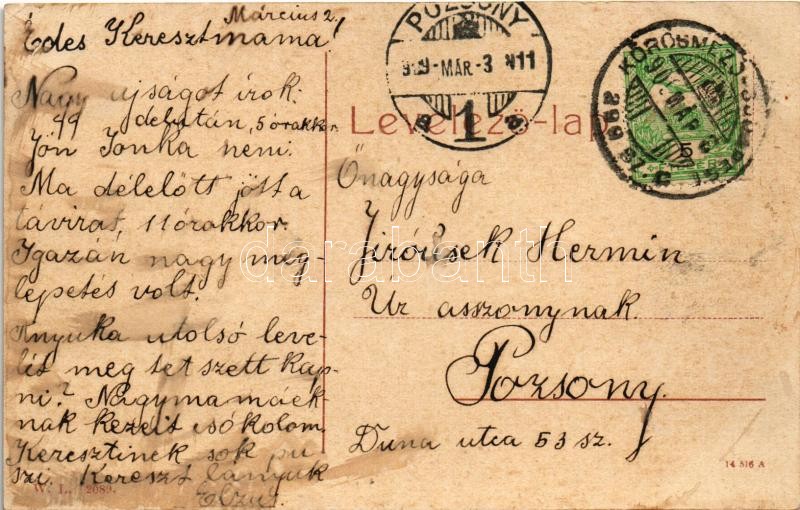 Március 2.
Édes Keresztmama!
Nagy ujságot irok.
délután, 5 órakkor
Jön Ionka neni.
Ma délelőtt jött a
távirat, 11 órakkor.
Igazán nagy meg-
lepetés volt.
Anyuka utolsó leve-
lét meg tet szett kap-
ni? Nagymamáék-
nak kezeit csókolom
Keresztinek sok pu
szi. Kereszt lányuk
W. L. 2089.
POZSONY
MAR.-3 N11
1
Levelező-lap.
Önagysága
Hermin
Úr asszonynak
Pozsony.
Duna utca 53 sz.
14 516 A
darabanth